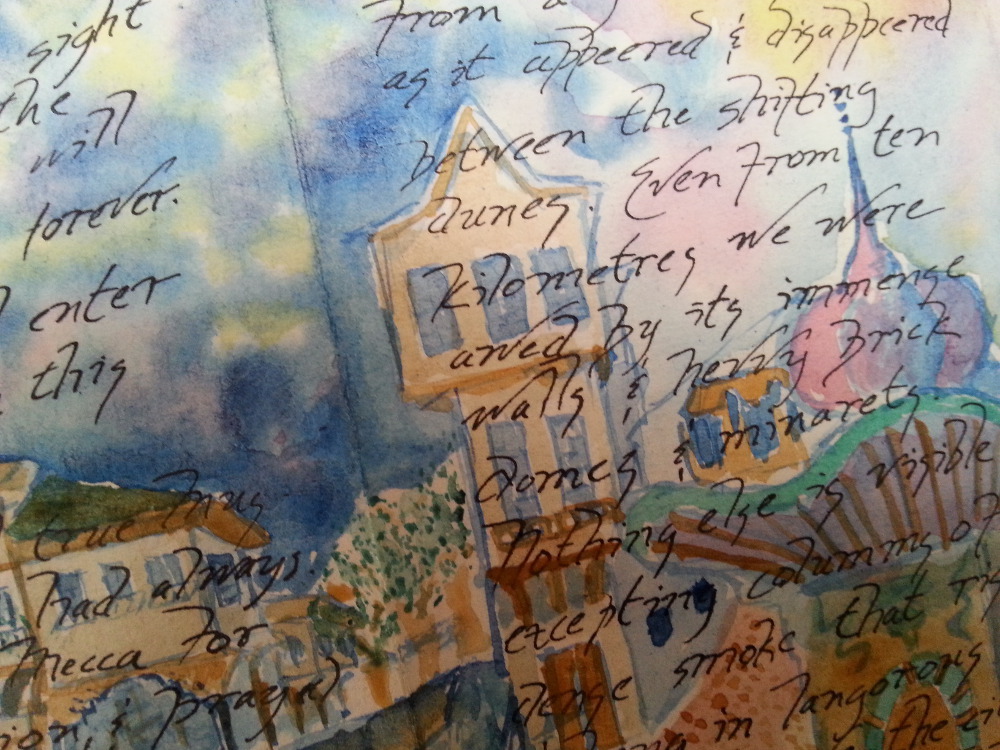 sight
the
will
forever.
enter
this
true
had always.
Mecca for
& prayed
From a
as it appeered & disappeered
between the shifting
dunes. Even from ten
kilometres we were
awed by its immense
walls & hervy Brick
domes & minarets.
Nothing else is visible
excepting columns of
dense smoke that
in langorous
the